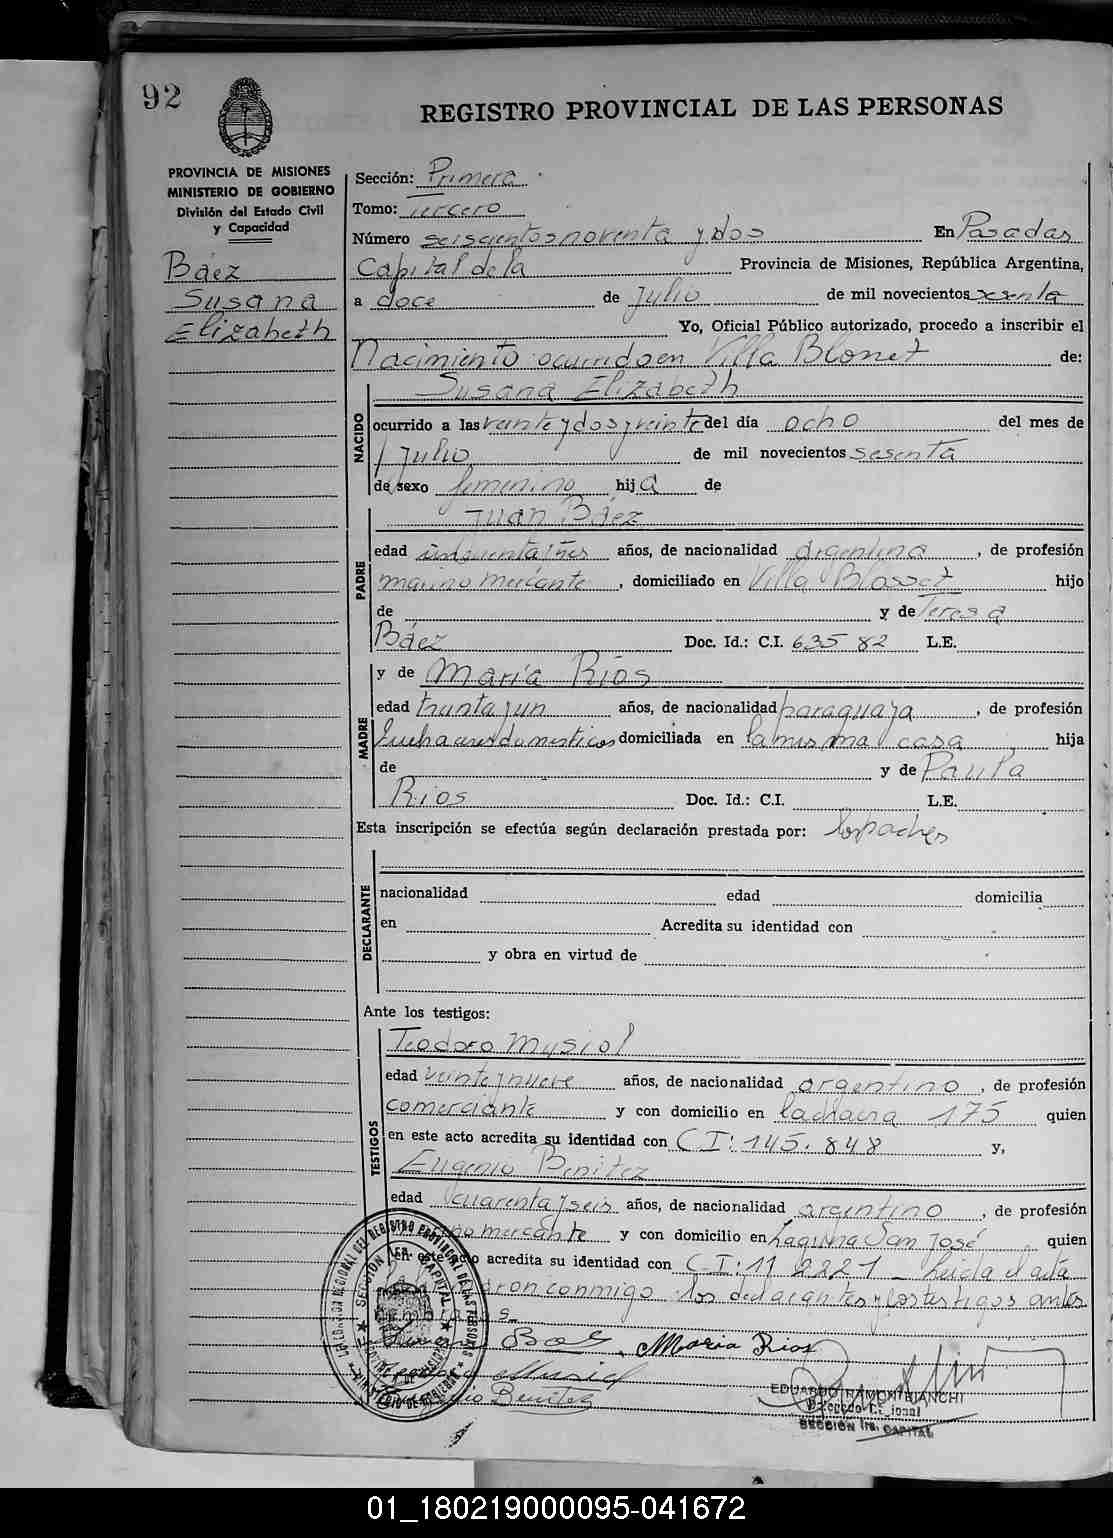 92
REGISTRO PROVINCIAL DE LAS PERSONAS
PROVINCIA DE MISIONES
MINISTERIO DE GOBIERNO
División del Estado Civil
y Capacidad
Báez
Susana
Elizabeth
Sección: Primera
Tomo: Tercero
Número seiscientos noventa y dos En Posadas
Capital de la Provincia de Misiones, República Argentina,
a doce de Julio de mil novecientos sesenta
Yo, Oficial Público autorizado, procedo a inscribir el
Nacimiento ocurrido en Villa Blosset de:
Susana Elizabeth
NACIDO
ocurrido a las veinte y dos y veinte del día ocho del mes de
Julio de mil novecientos sesenta
de sexo femenino hija de
Juan Báez
PADRE
edad cincuenta y tres años, de nacionalidad argentina, de profesión
marino mercante, domiciliado en Villa Blosset hijo
de y de Teresa
Báez Doc. Id.: C.I. 635 82 L.E.
y de María Ríos
MADRE
edad treinta y un años, de nacionalidad paraguaya, de profesión
quehaceres domésticos domiciliada en la misma casa hija
de y de Paula
Ríos Doc. Id.: C.I. L.E.
Esta inscripción se efectúa según declaración prestada por: los padres
DECLARANTE
nacionalidad edad domicilia
en Acredita su identidad con
y obra en virtud de
Ante los testigos:
TESTIGOS
Teodoro Musiol
edad veinte y nueve años, de nacionalidad argentino, de profesión
comerciante y con domicilio en la chacra 175 quien
en este acto acredita su identidad con CI: 145.848 y,
Eugenio Benitez
edad cuarenta y seis años, de nacionalidad argentino, de profesión
mercante y con domicilio en Laguna San José quien
en este acto acredita su identidad con C-I: 11 2221 - Leída el acta
conmigo los declarantes y los testigos antes
Maria Rios
Benitez
EDUARDO RAMON BIANCHI
SECCION 1ra. CAPITAL
01_180219000095-041672